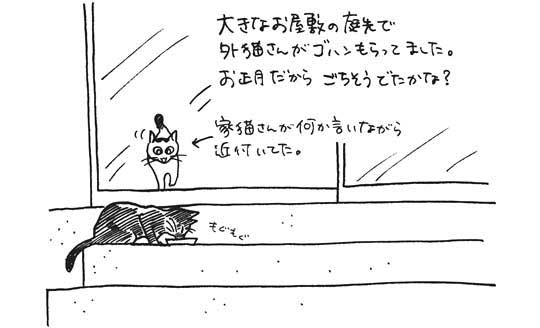 大きなお屋敷の庭先で
外猫さんがゴハンもらってました。
お正月だから ごちそうでたかな？
家猫さんが何か言いながら
近付いてた。
もぐもぐ